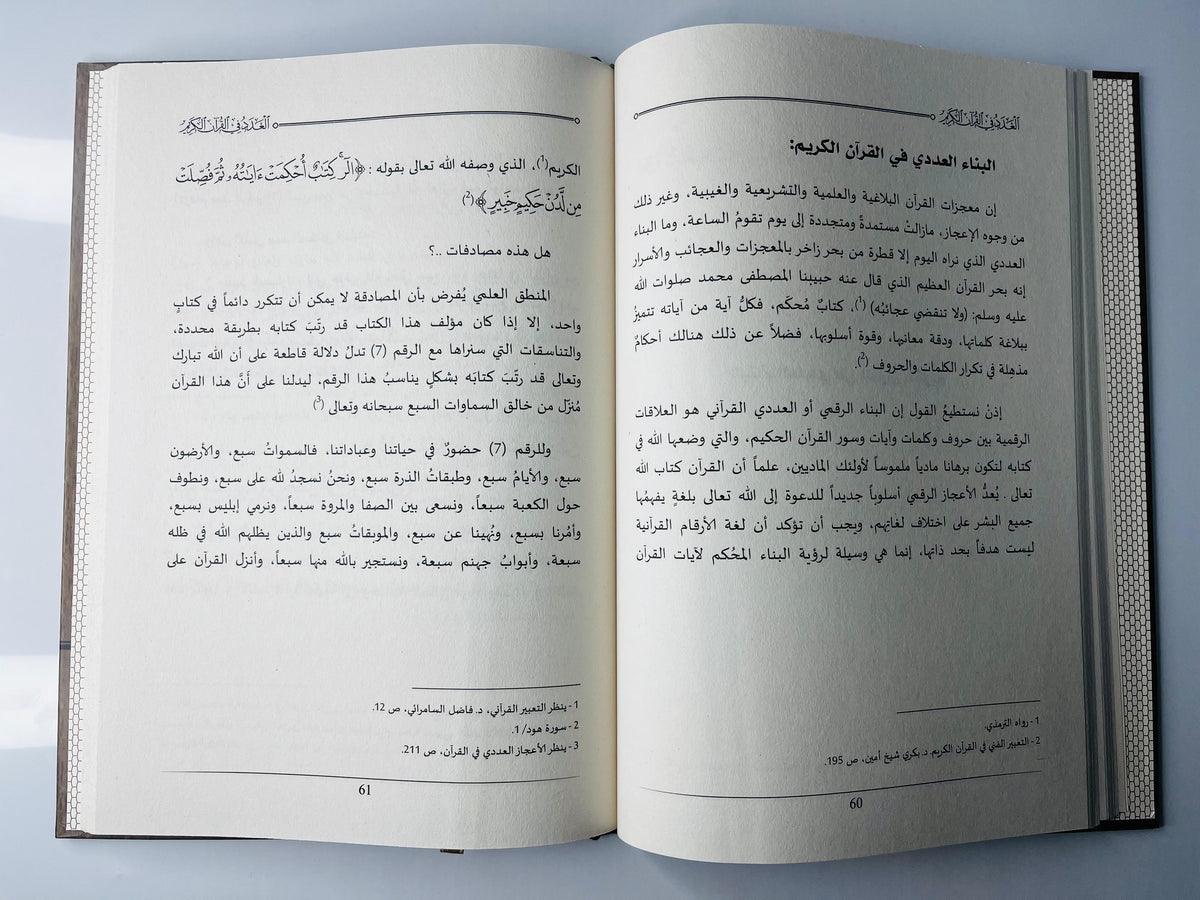 العدد في القرآن الكريم
البناء العددي في القرآن الكريم:
إن معجزات القرآن البلاغية والعلمية والتشريعية والغيبية، وغير ذلك
من وجوه الإعجاز، مازالتْ مستمدةً ومتجددة إلى يوم تقومُ الساعة، وما البناء
العددي الذي نراه اليوم إلا قطرة من بحر زاخر بالمعجزات والعجائب والأسرار
إنه بحر القرآن العظيم الذي قال عنه حبيبنا المصطفى محمد صلوات الله
عليه وسلم: (ولا تنقضي عجائبُه) (1)، كتابٌ مُحكَم، فكلُّ آية من آياته تتميزُ
ببلاغة كلماتها، ودقة معانيها، وقوة أسلوبها، فضلاً عن ذلك هنالك أحكامٌ
مذهِلة في تكرار الكلمات والحروف (2).
إذنْ نستطيعُ القول إن البناء الرقمي أو العددي القرآني هو العلاقات
الرقمية بين حروف وكلمات وآيات وسور القرآن الحكيم، والتي وضعها الله في
كتابه لتكون برهانا مادياً ملموساً لأولئك الماديين، علماً أن القرآن كتاب الله
تعالى . يُعدُّ الأعجاز الرقمي أسلوباً جديداً للدعوة إلى الله تعالى بلغةٍ يفهمُها
جميع البشر على اختلاف لغاتِهم، ويجب أن تؤكد أن لغة الأرقام القرآنية
ليست هدفاً بحد ذاتها، إنما هي وسيلة لرؤية البناء المحُكم لآيات القرآن
1 - رواه الترمذي.
2 - التعبير الفني في القرآن الكريم. د. بكري شيخ أمين، ص 195.
60
العدد في القرآن الكريم
الكريم(1)، الذي وصفه الله تعالى بقوله : ﴿الٓرۚ كِتَٰبٌ أُحۡكِمَتۡ ءَايَٰتُهُۥ ثُمَّ فُصِّلَتۡ
مِن لَّدُنۡ حَكِيمٍ خَبِيرٍ﴾(2)
هل هذه مصادفات ..؟
المنطق العلمي يُفرض بأن المصادقة لا يمكن أن تتكرر دائماً في كتابٍ
واحد، إلا إذا كان مؤلف هذا الكتاب قد رتَّبَ كتابه بطريقة محددة،
والتناسقات التي سنراها مع الرقم (7) تدلُ دلالة قاطعة على أن الله تبارك
وتعالى قد رتَّبَ كتابَه بشكلٍ يناسبُ هذا الرقم، ليدلنا على أنَّ هذا القرآن
مُنزّل من خالق السماوات السبع سبحانه وتعالى (3)
وللرقم (7) حضورٌ في حياتنا وعباداتنا، فالسمواتُ سبع، والأرضون
سبع، والأيامُ سبع، وطبقاتُ الذرة سبع، ونحنُ نسجدُ لله على سبع، ونطوف
حول الكعبة سبعاً، ونسعى بين الصفا والمروة سبعاً، ونرمي إبليس بسبع،
وأمُرنا بسبع، ونُهينا عن سبع، والموبقاتُ سبع والذين يظلهم الله في ظله
سبعة، وأبوابُ جهنم سبعة، ونستجير بالله منها سبعاً، وأنزل القرآن على
1 - ينظر التعبير القرآني، د. فاضل السامرائي، ص 12.
2 - سورة هود/ 1.
3 - ينظر الأعجاز العددي في القرآن، ص 211.
61